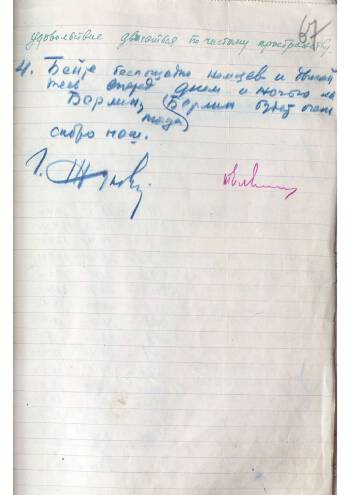 67
удовольствие двигаться по чистому пространству
4. Бейте беспощадно немцев и двигай
тесь вперед днем и ночью на
Берлин, тогда Берлин будет очень
скоро наш.
Г. Жуков.